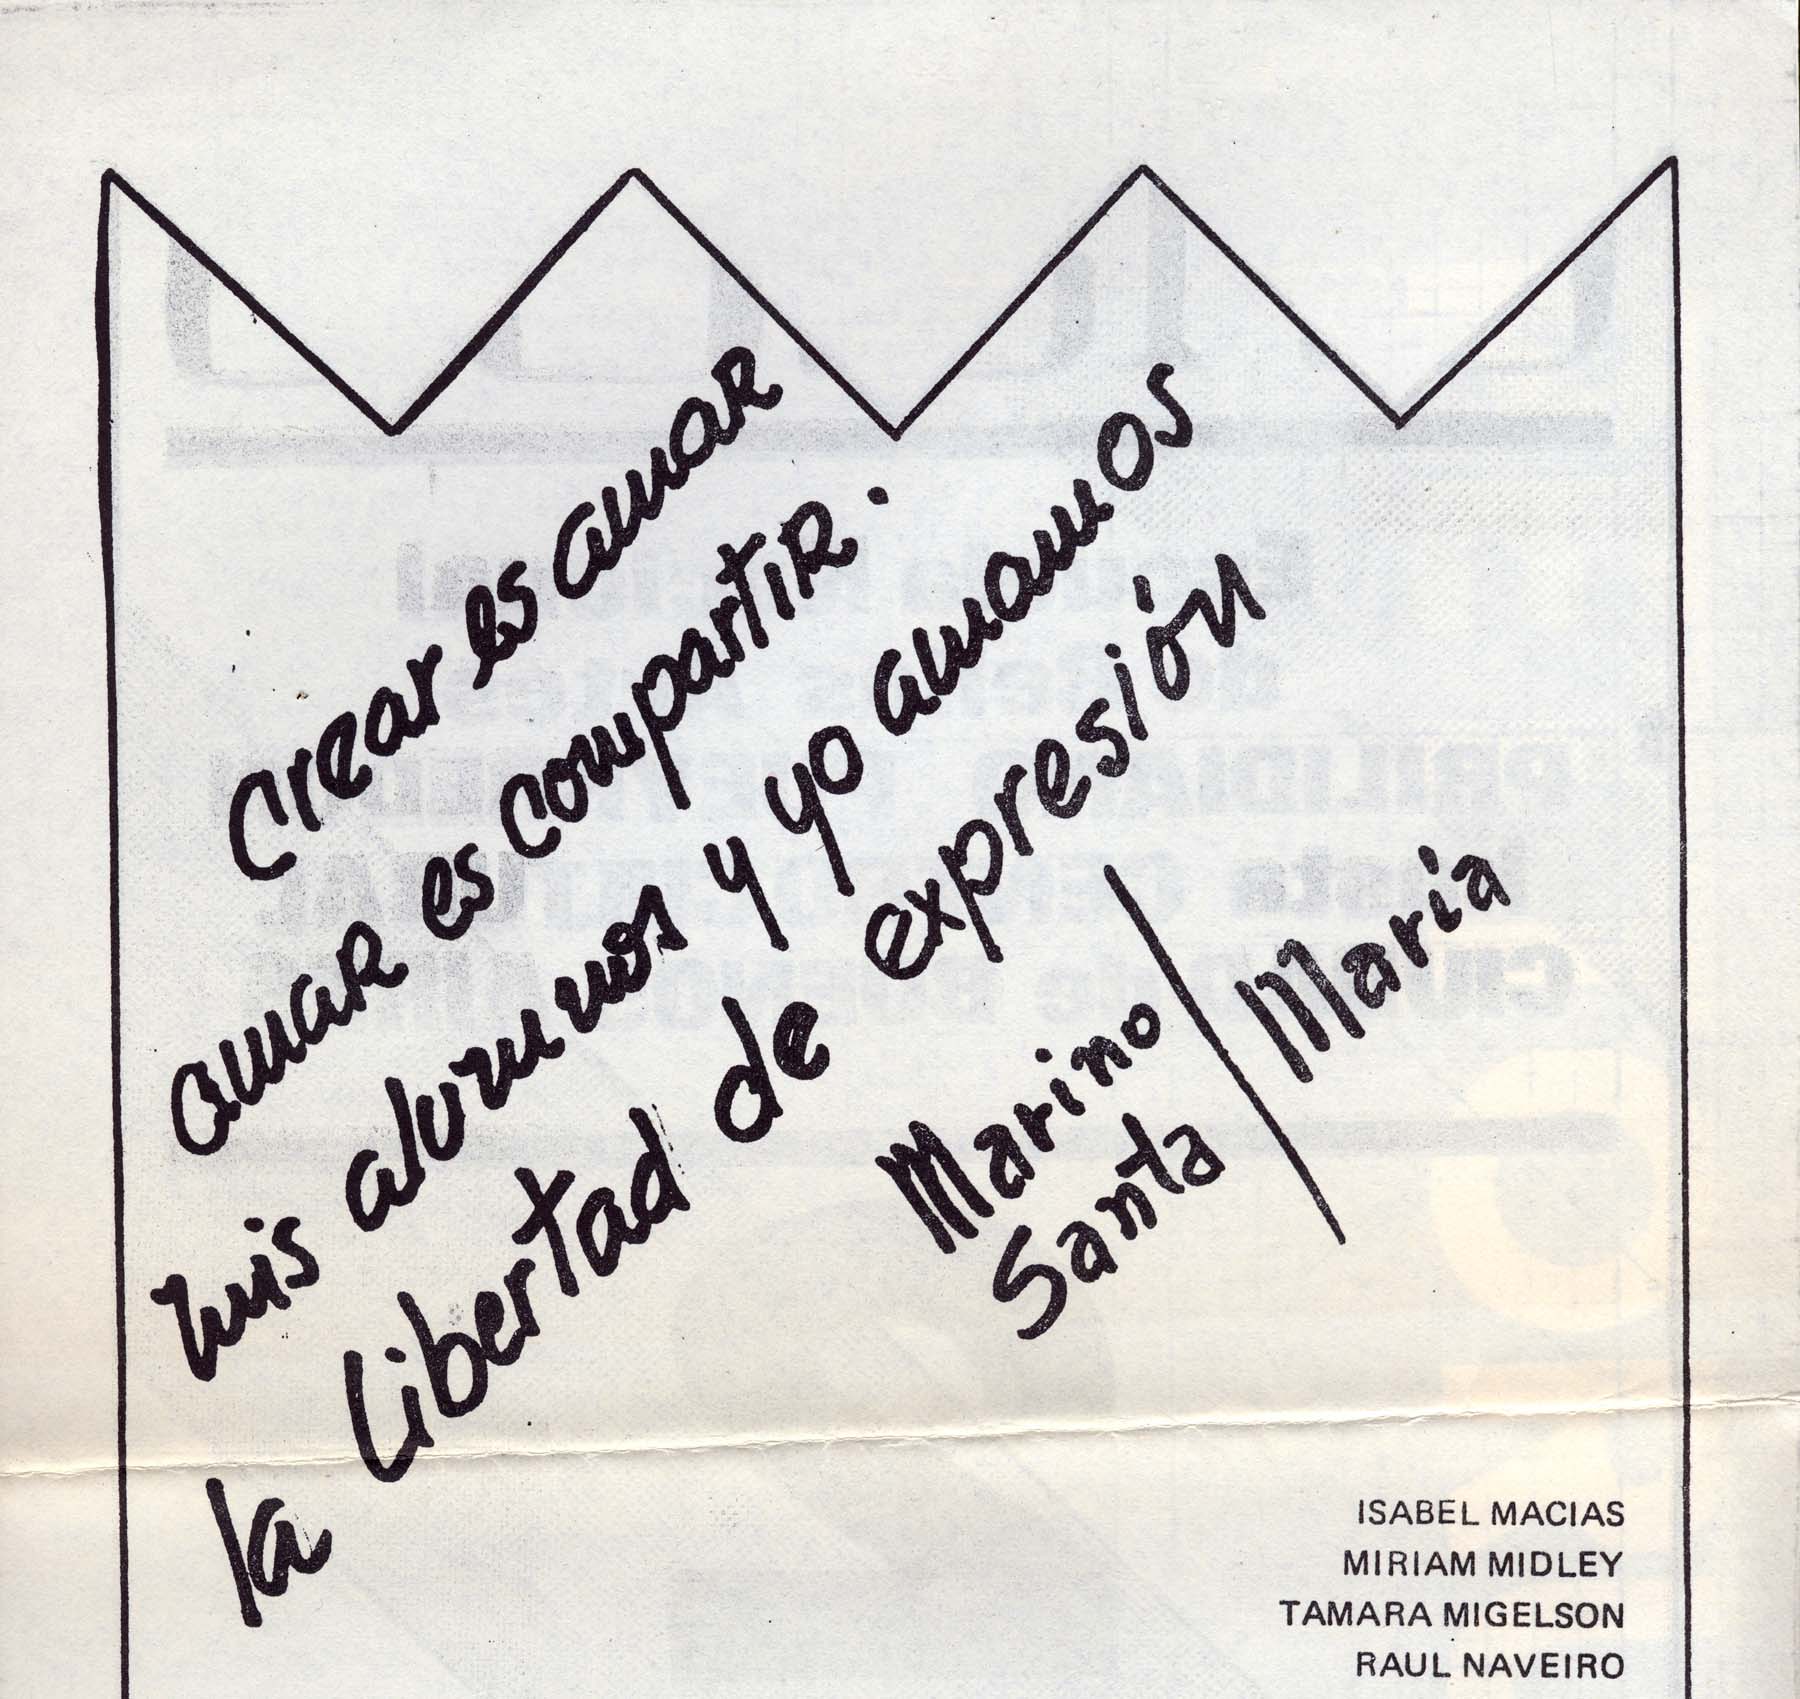 crear es amar
amar es compartir.
mis alumnos y yo amamos
la libertad de expresión
Marino
Santa
María
ISABEL MACIAS
MIRIAM MIDLEY
TAMARA MIGELSON
RAUL NAVEIRO